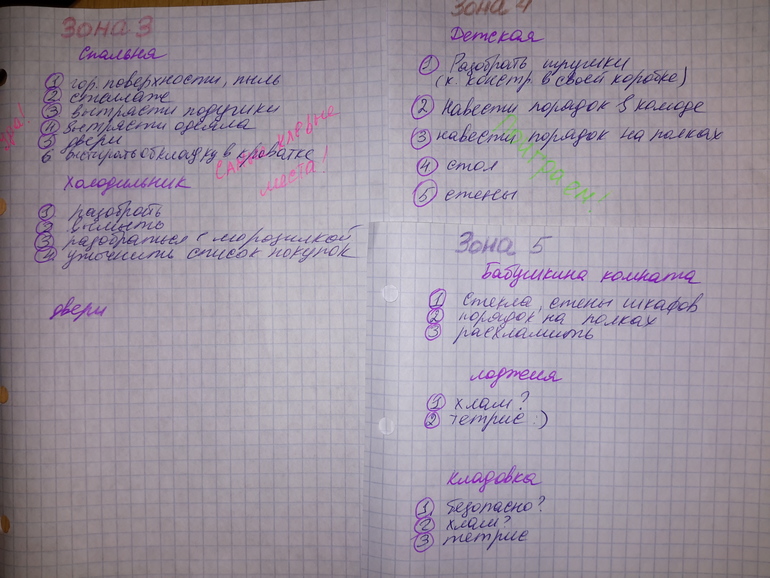 Зона 3
Спальня
1 гор. поверхности, пыль
2 стеллаж
3 вытрясти подушки
4 вытрясти одеяла
5 двери
6 выстирать обкладку в кроватке
самые хлебные
места!
Холодильник
1 разобрать
2 вымыть
3 разобраться с морозилкой
4 уточнить список покупок
двери
Зона 4
Детская
Разобрать игрушки
(к. констр. в своей коробке)
2 Навести порядок в комоде
3 навести порядок на полках
4 стол
5 стены
поиграем!
Зона 5
Бабушкина комната
1 Стекла, стены шкафов
2 порядок на полках
3 расхламить
лоджия
1 хлам?
2 тетрис :)
кладовка
1 безопасно?
2 хлам?
3 тетрис